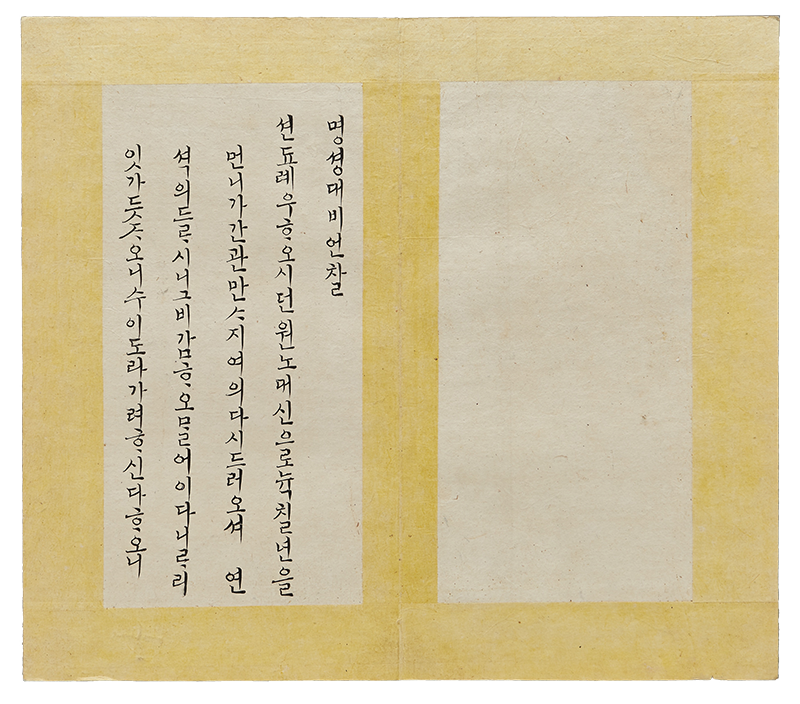 명셩대비언찰
션됴례우ᄒᆞ오시던원노대신으로뉵칠년을
먼니가간관만ᄉᆞ지여의다시드러오셔 연
셕의드ᄅᆞ시니그비감ᄒᆞ오믈어이다니ᄅᆞ리
잇가듯ᄌᆞ오니수이도라가려ᄒᆞ신다ᄒᆞ오니